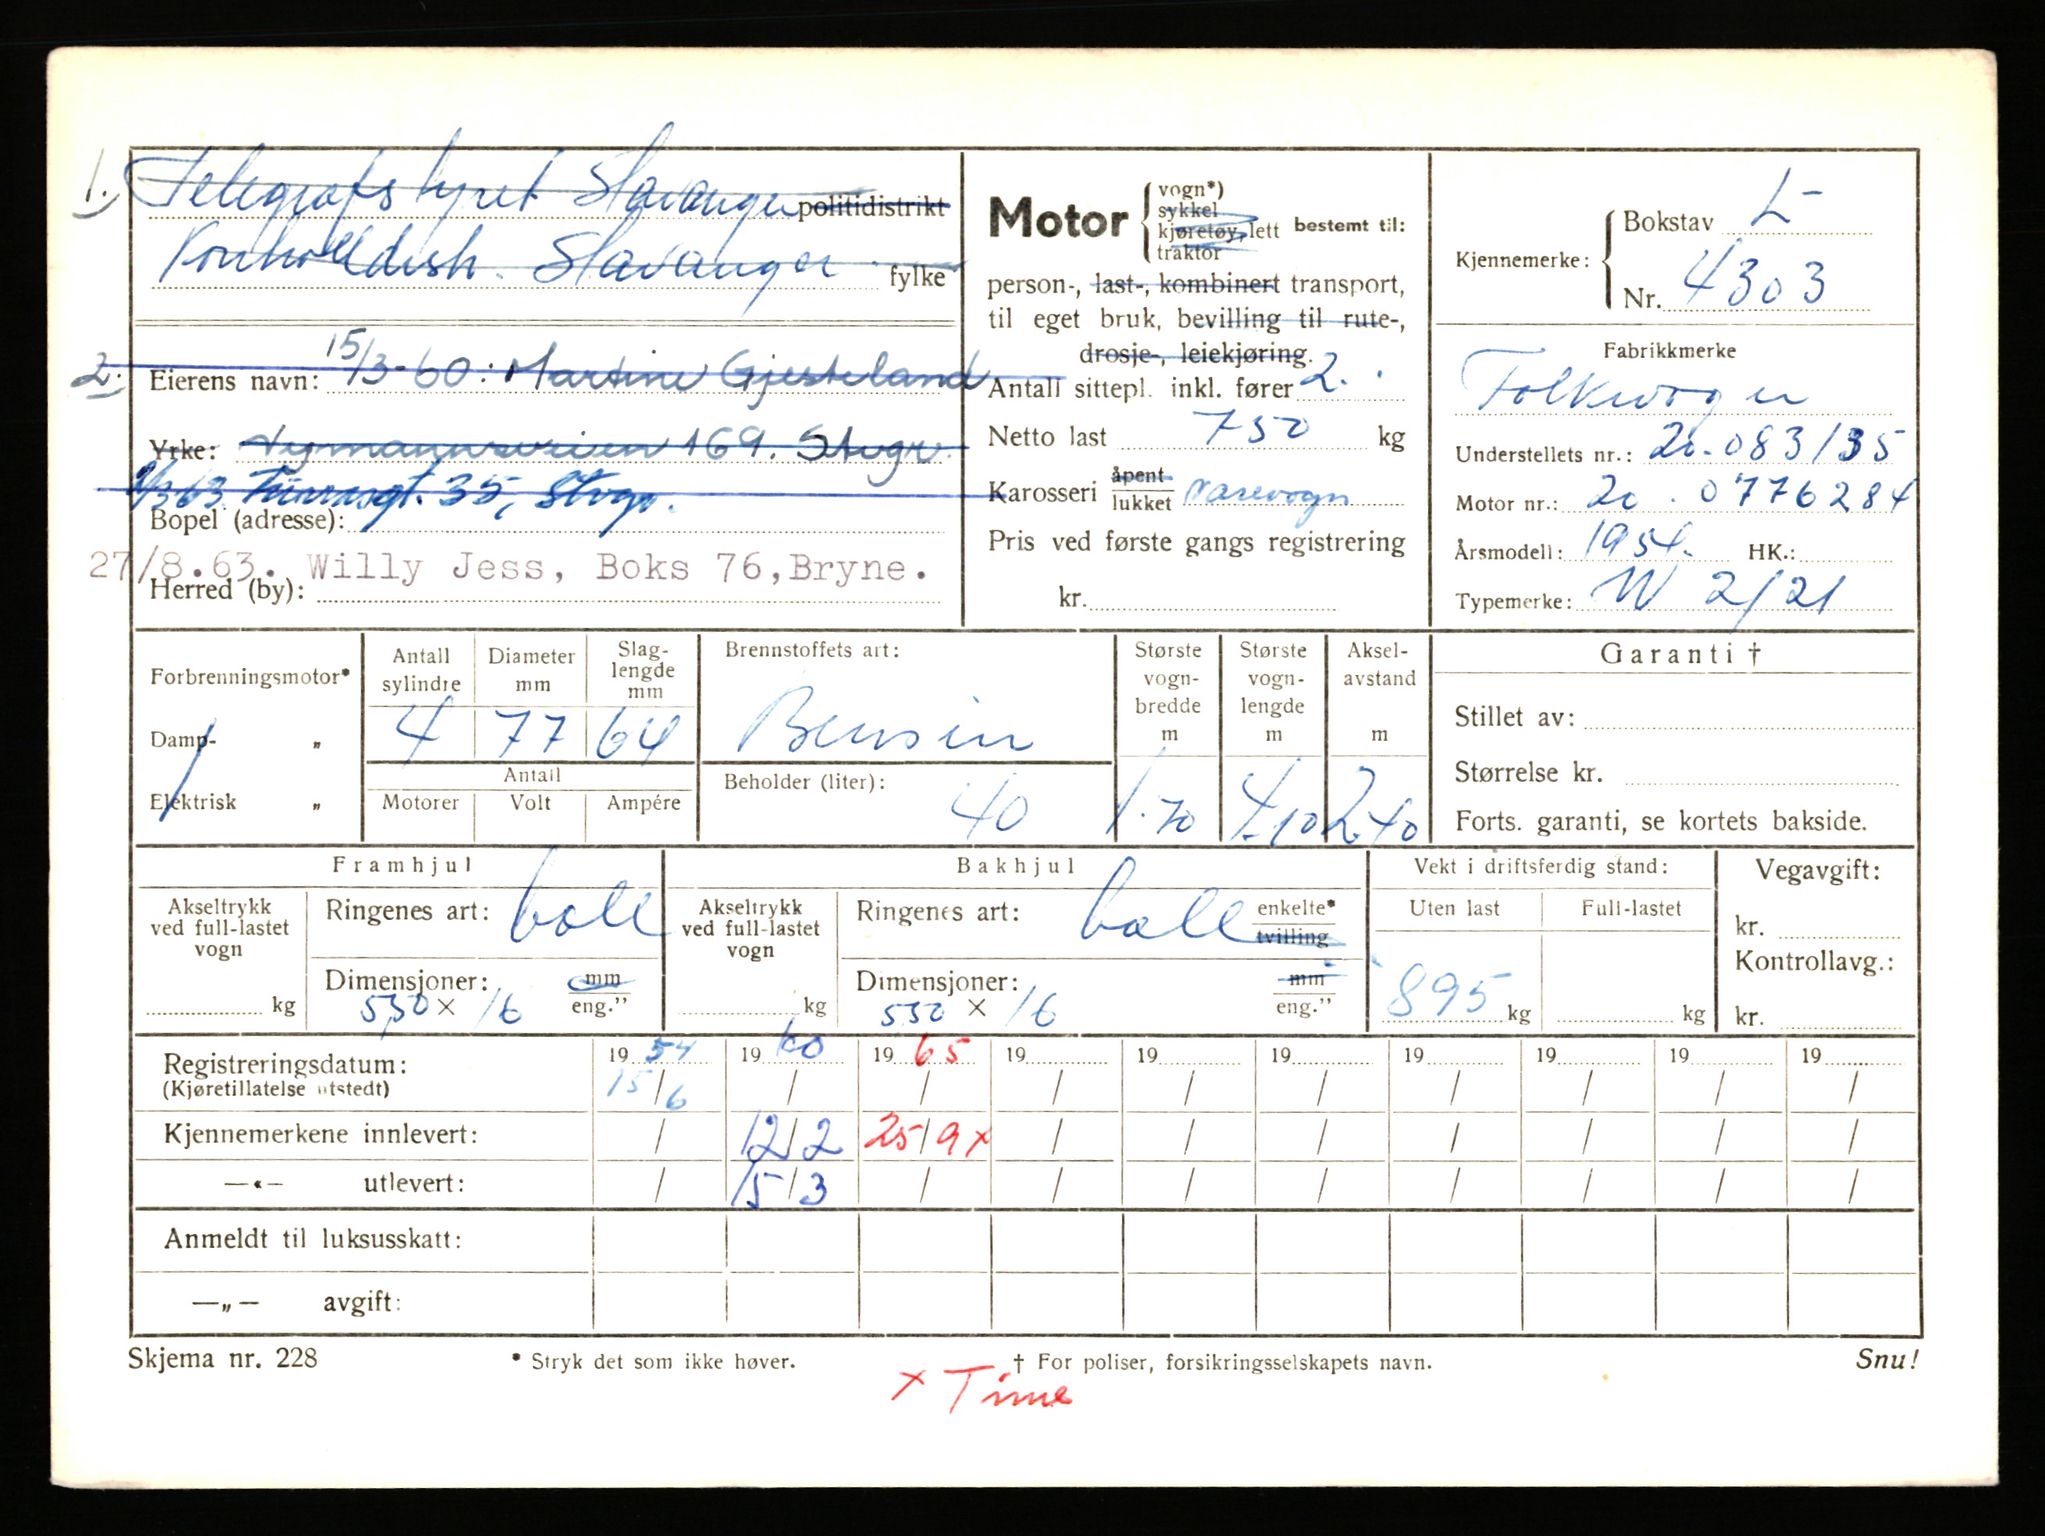 1. Telegrafstyret Stavanger politidistrikt
Stavanger fylke
2. Eierens navn: 15/3-60: Martine Gjesteland
Yrke: 169. Stvgr.
35, Stvgr.
Bopel (adresse):
27/8.63. Willy Jess, Boks 76, Bryne.
Herred (by):
Motor { vogn*)
sykkel
kjøretøy, lett
traktor
bestemt til:
person-, last-, kombinert transport,
til eget bruk, bevilling til rute-,
drosje-, leiekjøring.
Antall sittepl. inkl. fører 2.
Netto last 750 kg
Karosseri åpent lukket varevogn
Pris ved første gangs registrering
kr.
Kjennemerke: { Bokstav L-
Nr. 4303
Fabrikkmerke
Folkevogn
Understellets nr.: 20.083135
Motor nr.: 20.0776284
Årsmodell: 1954. HK.:
Typemerke: W 2/21
Forbrenningsmotor*
Damp- „
Elektrisk „
Antall sylindre Diameter mm Slag-lengde mm
4 77 64
Antall
Motorer Volt Ampére
Brennstoffets art:
Bensin
Beholder (liter): 40
Største vogn-bredde m 1.70
Største vogn-lengde m 4.10
Aksel-avstand m 2.40
Garanti †
Stillet av:
Størrelse kr.
Forts. garanti, se kortets bakside.
Framhjul
Akseltrykk ved full-lastet vogn
kg
Ringenes art: ball
Dimensjoner: mm
550 x 16 eng."
Bakhjul
Akseltrykk ved full-lastet vogn
kg
Ringenes art: ball enkelte* tvilling
Dimensjoner: mm
550 x 16 eng."
Vekt i driftsferdig stand:
Uten last Full-lastet
895 kg kg
Vegavgift:
kr.
Kontrollavg.:
kr.
Registreringsdatum: 19 54 19 60 19 65 19 19 19 19 19 19 19
(Kjøretillatelse utstedt) 15/6 / / / / / / / / /
Kjennemerkene innlevert: / 12/2 25/9 x / / / / / / /
—«— utlevert: / 15/3 / / / / / / / /
Anmeldt til luksusskatt:
—„— avgift:
Skjema nr. 228 * Stryk det som ikke høver. † For poliser, forsikringsselskapets navn. Snu!
x Time